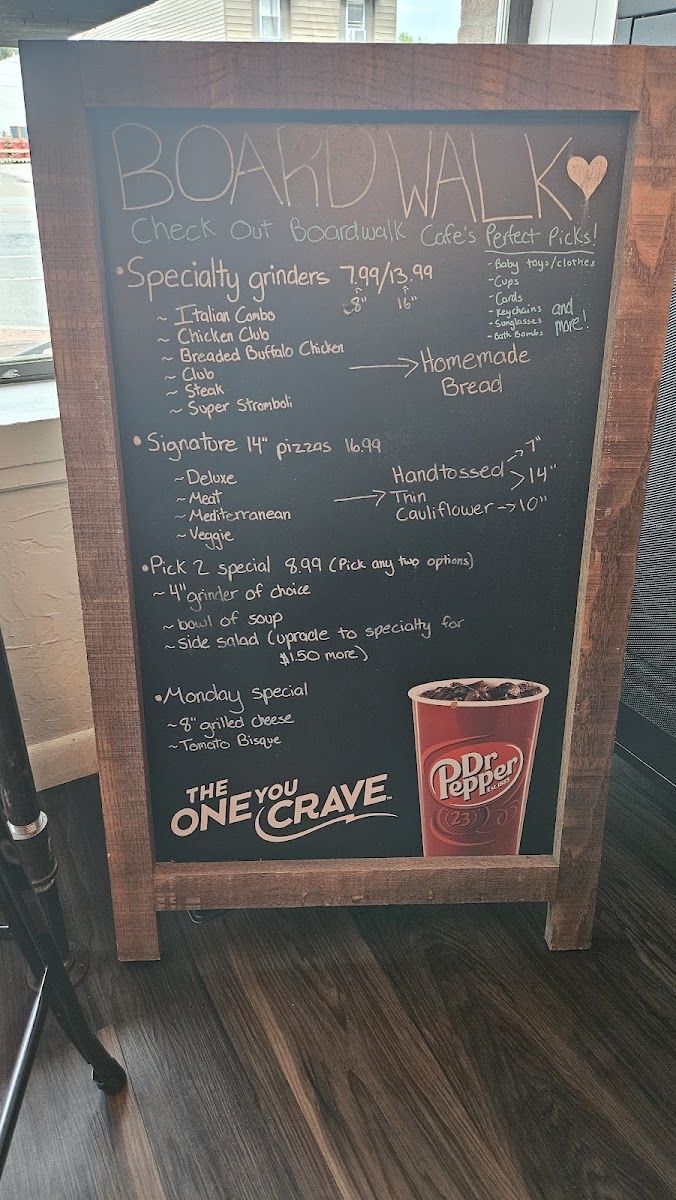 BOARDWALK
Check Out Boardwalk Cafe's Perfect Picks!
- Baby toys/clothes
- Cups
- Cards
- Keychains
- Sunglasses
- Bath Bombs
and
more!
• Specialty grinders 7.99/13.99
8" 16"
~ Italian Combo
~ Chicken Club
~ Breaded Buffalo Chicken
~ Club
~ Steak
~ Super Stromboli
→ Homemade
Bread
• Signature 14" pizzas 16.99
~ Deluxe
~ Meat
~ Mediterranean
~ Veggie
→ Handtossed → 7"
Thin > 14"
Cauliflower → 10"
• Pick 2 special 8.99 (Pick any two options)
~ 4" grinder of choice
~ bowl of soup
~ side salad (upracle to specialty for
$1.50 more)
• Monday special
~ 8" grilled cheese
~ Tomato Bisque
THE
ONE YOU
CRAVE™
Dr
Pepper
EST. 1885
23